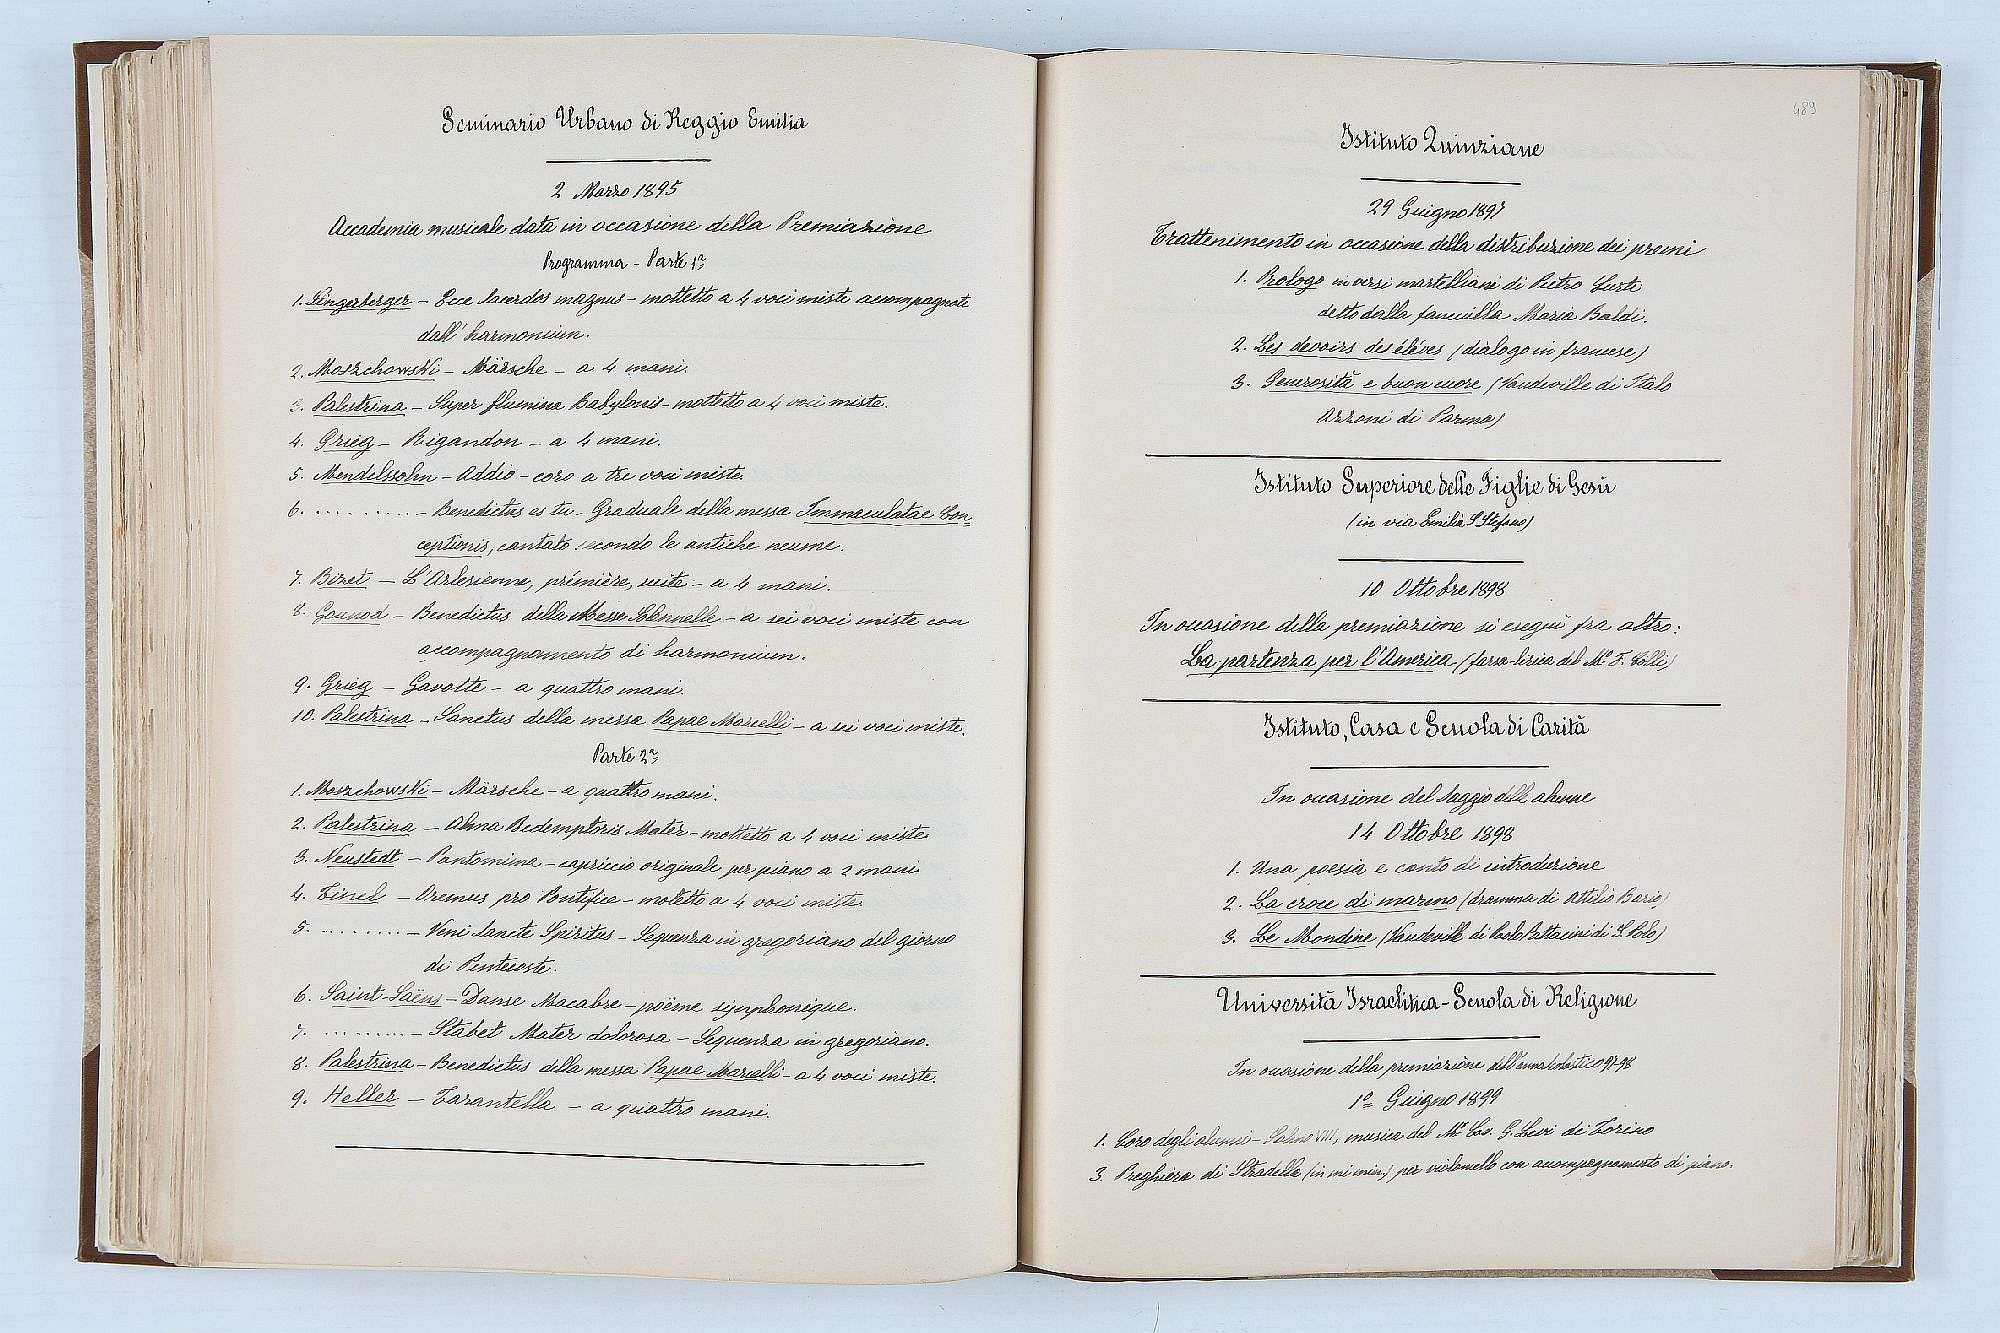 Seminario Urbano di Reggio Emilia
2 Marzo 1895
Accademia musicale data in occasione della Premiazione
Programma - Parte 1ª
1. Singerberger - Ecce Sacerdos magnus - mottetto a 4 voci miste accompagnate
dall' harmonium.
2. Moszchowski - Märsche - a 4 mani.
3. Palestrina - Super flumina Babylonis - mottetto a 4 voci miste.
4. Grieg - Rigaudon - a 4 mani.
5. Mendelssohn - Addio - coro a tre voci miste.
6. .......... - Benedictus es tu - Graduale della messa Immaculatae Con-
ceptionis, cantato secondo le antiche neume.
7. Bizet - L'Arlesienne, première, suite - a 4 mani.
8. Gounod - Benedictus della Messe Solennelle - a sei voci miste con
accompagnamento di harmonium.
9. Grieg - Gavotte - a quattro mani.
10. Palestrina - Sanctus della messa Papae Marcelli - a sei voci miste.
Parte 2ª
1. Moszchowski - Märsche - a quattro mani.
2. Palestrina - Alma Redemptoris Mater - mottetto a 4 voci miste.
3. Neustedt - Pantomima - capriccio originale per piano a 2 mani
4. Tinel - Oremus pro Pontifice - mottetto a 4 voci miste.
5. ........ - Veni Sancte Spiritus - Sequenza in gregoriano del giorno
di Pentecoste.
6. Saint-Saëns - Danse Macabre - poëme symphonique.
7. ......... - Stabat Mater dolorosa - Sequenza in gregoriano.
8. Palestrina - Benedictus della messa Papae Marcelli - a 4 voci miste.
9. Heller - Tarantella - a quattro mani.
489
Istituto Zuinziane
29 Giugno 1897
Trattenimento in occasione della distribuzione dei premi
1. Prologo in versi martelliani di Pietro Curti
detto dalla fanciulla Maria Baldi.
2. Les devoirs des éléves (dialogo in francese)
3. Generosità e buon cuore (Vaudeville di Italo
Azzoni di Parma)
Istituto Superiore delle Figlie di Gesù
(in via Emilia S. Stefano)
10 Ottobre 1898
In occasione della premiazione si eseguì fra altro:
La partenza per l'America - (farsa-lirica del Mº F. Colli)
Istituto, Casa e Scuola di Carità
In occasione del Saggio delle alunne
14 Ottobre 1898
1. Una poesia e canto di introduzione
2. La croce di marmo (dramma di Attilio Bario)
3. Le Mondine (Vaudeville di Paolo Bottacini di S. Polo)
Università Israelitica - Scuola di Religione
In occasione della premiazione dell'anno scolastico 97-98
1º Giugno 1899
1. Coro degli alunni - Salmo VIII, musica del Mº Cav. G. Levi di Torino
3. Preghiera di Stradella (in mi min.) per violoncello con accompagnamento di piano.